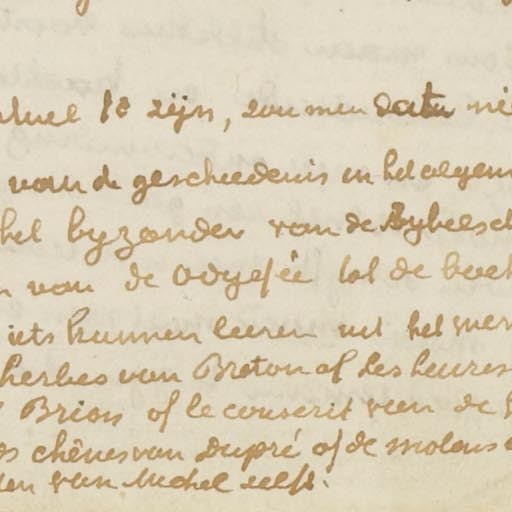 te zijn, zou men dat
van de geschiedenis in het algem
het byzonder van de Bybelsch
van de Odyssée tot de boek
iets kunnen leeren uit het wer
herbes van Breton of les heures
Brion of le conscrit van de
chênes van Dupré of de molens
van Michel zelf.